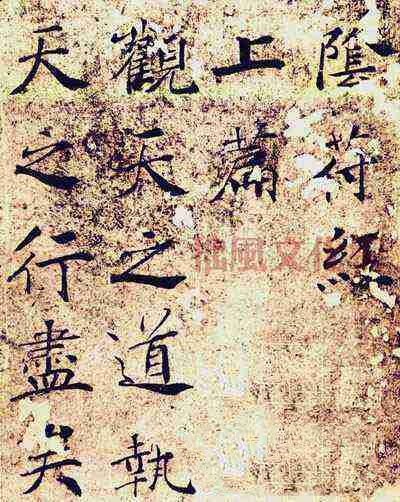 陰符經
上篇
觀天之道執
天之行盡矣
拙風文化